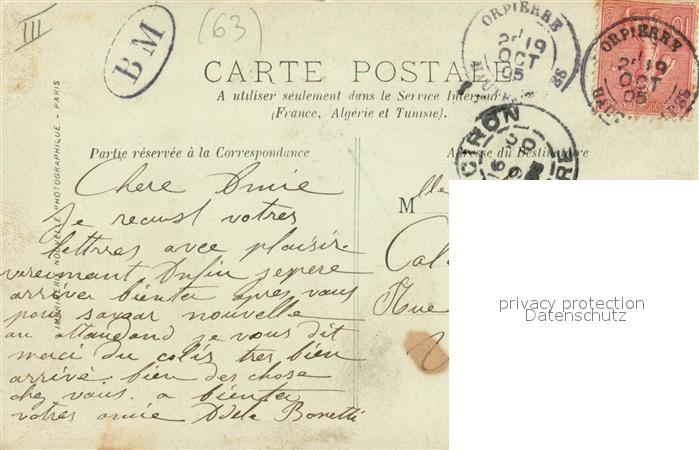 III
BM
(63)
ORPIERRE
19
OCT
05
ORPIERRE
19
OCT
05
CARTE POSTALE
A utiliser seulement dans le Service Intérieur
(France, Algérie et Tunisie).
Partie réservée à la Correspondance
Adresse du Destinataire
IMPRIMERIE NOUVELLE PHOTOGRAPHIQUE. - PARIS
Chere Amie
Je recust votres
lettres avec plaisir
Anfin jepere
arriver bienta apres vous
pour nouvelle
au attandand je vous dit
merci du colis tres bien
arrivé bien des chose
chez vous. a bienta
votres amie Adele Bonetti
Mlle
Cal
Rue
privacy protection
Datenschutz